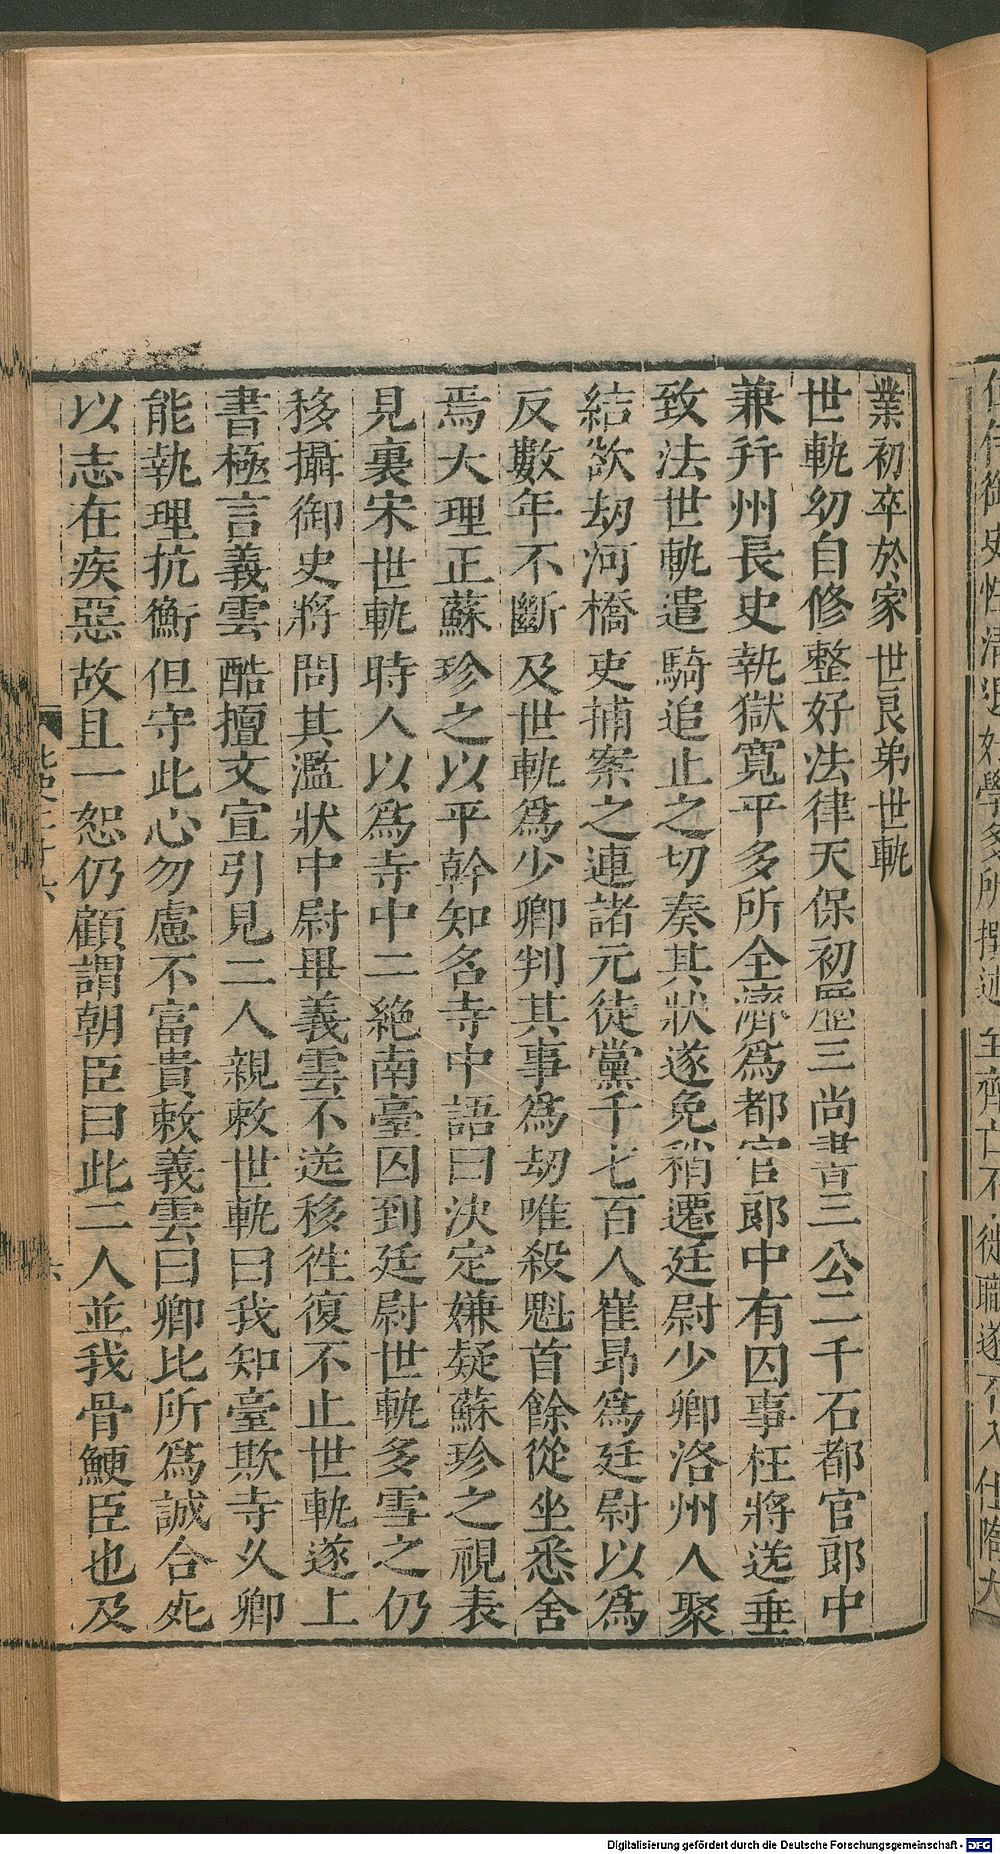 業初卒於家世良弟世軌
世軌幼自修整好法律天保初歷三尚書三公二千石都官郎中
兼并州長史執獄寬平多所全濟為都官郎中有囚事枉將送垂
致法世軌遣騎追止之切奏其狀遂免稍遷廷尉少卿洛州人聚
結欲刼河橋吏捕案之連諸元徒黨千七百人崔昂為廷尉以為
反數年不斷及世軌為少卿判其事為刼唯殺魁首餘從坐悉舍
焉大理正蘇珍之以平幹知名寺中語曰決定嫌疑蘇珍之視表
見裏宋世軌時人以為寺中二絕南臺囚到廷尉世軌多雪之仍
移攝御史將問其濫狀中尉畢義雲不送移徃復不止世軌遂上
書極言義雲酷擅文宣引見二人親敕世軌曰我知臺欺寺乆卿
能執理抗衡但守此心勿慮不富貴敕義雲曰卿比所為誠合死
以志在疾惡故且一恕仍顧謂朝臣曰此二人並我骨鯁臣也及
Digitalisierung gefördert durch die Deutsche Forschungsgemeinschaft - DFG